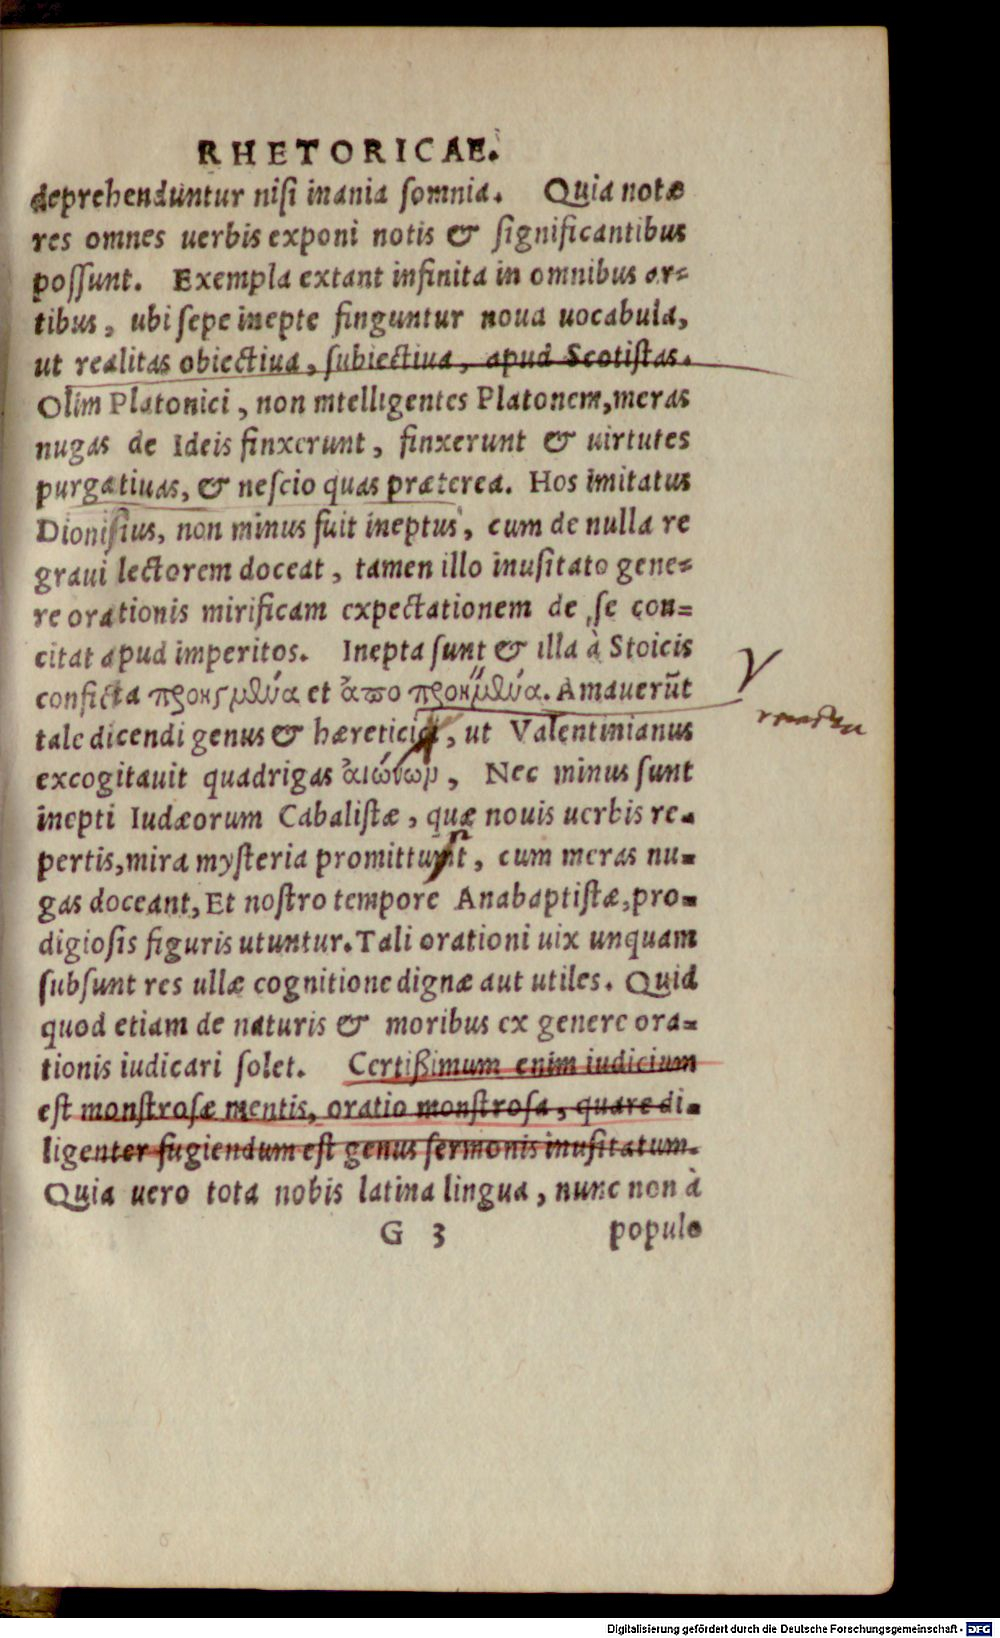 RHETORICAE.
deprehenduntur nisi inania somnia. Quia notæ
res omnes uerbis exponi notis & significantibus
possunt. Exempla extant infinita in omnibus ar=
tibus, ubi sepe inepte finguntur noua uocabula,
ut realitas obiectiua, subiectiua, apud Scotistas.
Olim Platonici, non intelligentes Platonem, meras
nugas de Ideis finxerunt, finxerunt & uirtutes
purgatiuas, & nescio quas præterea. Hos imitatus
Dionisius, non minus fuit ineptus, cum de nulla re
graui lectorem doceat, tamen illo inusitato gene=
re orationis mirificam expectationem de se con=
citat apud imperitos. Inepta sunt & illa à Stoicis
conficta et Amauerūt
tale dicendi genus & hæretici, ut Valentinianus
excogitauit quadrigas ἀιώνων, Nec minus sunt
inepti Iudæorum Cabalistæ, quæ nouis uerbis re=
pertis, mira mysteria promittunt, cum meras nu=
gas doceant, Et nostro tempore Anabaptistæ, pro=
digiosis figuris utuntur. Tali orationi uix unquam
subsunt res ullæ cognitione dignæ aut utiles. Quid
quod etiam de naturis & moribus ex genere ora=
tionis iudicari solet. Certißimum enim iudicium
est monstrosæ mentis, oratio monstrosa, quare di=
ligenter fugiendum est genus sermonis inusitatum.
Quia uero tota nobis latina lingua, nunc non à
G 3 populo
Digitalisierung gefördert durch die Deutsche Forschungsgemeinschaft - DFG